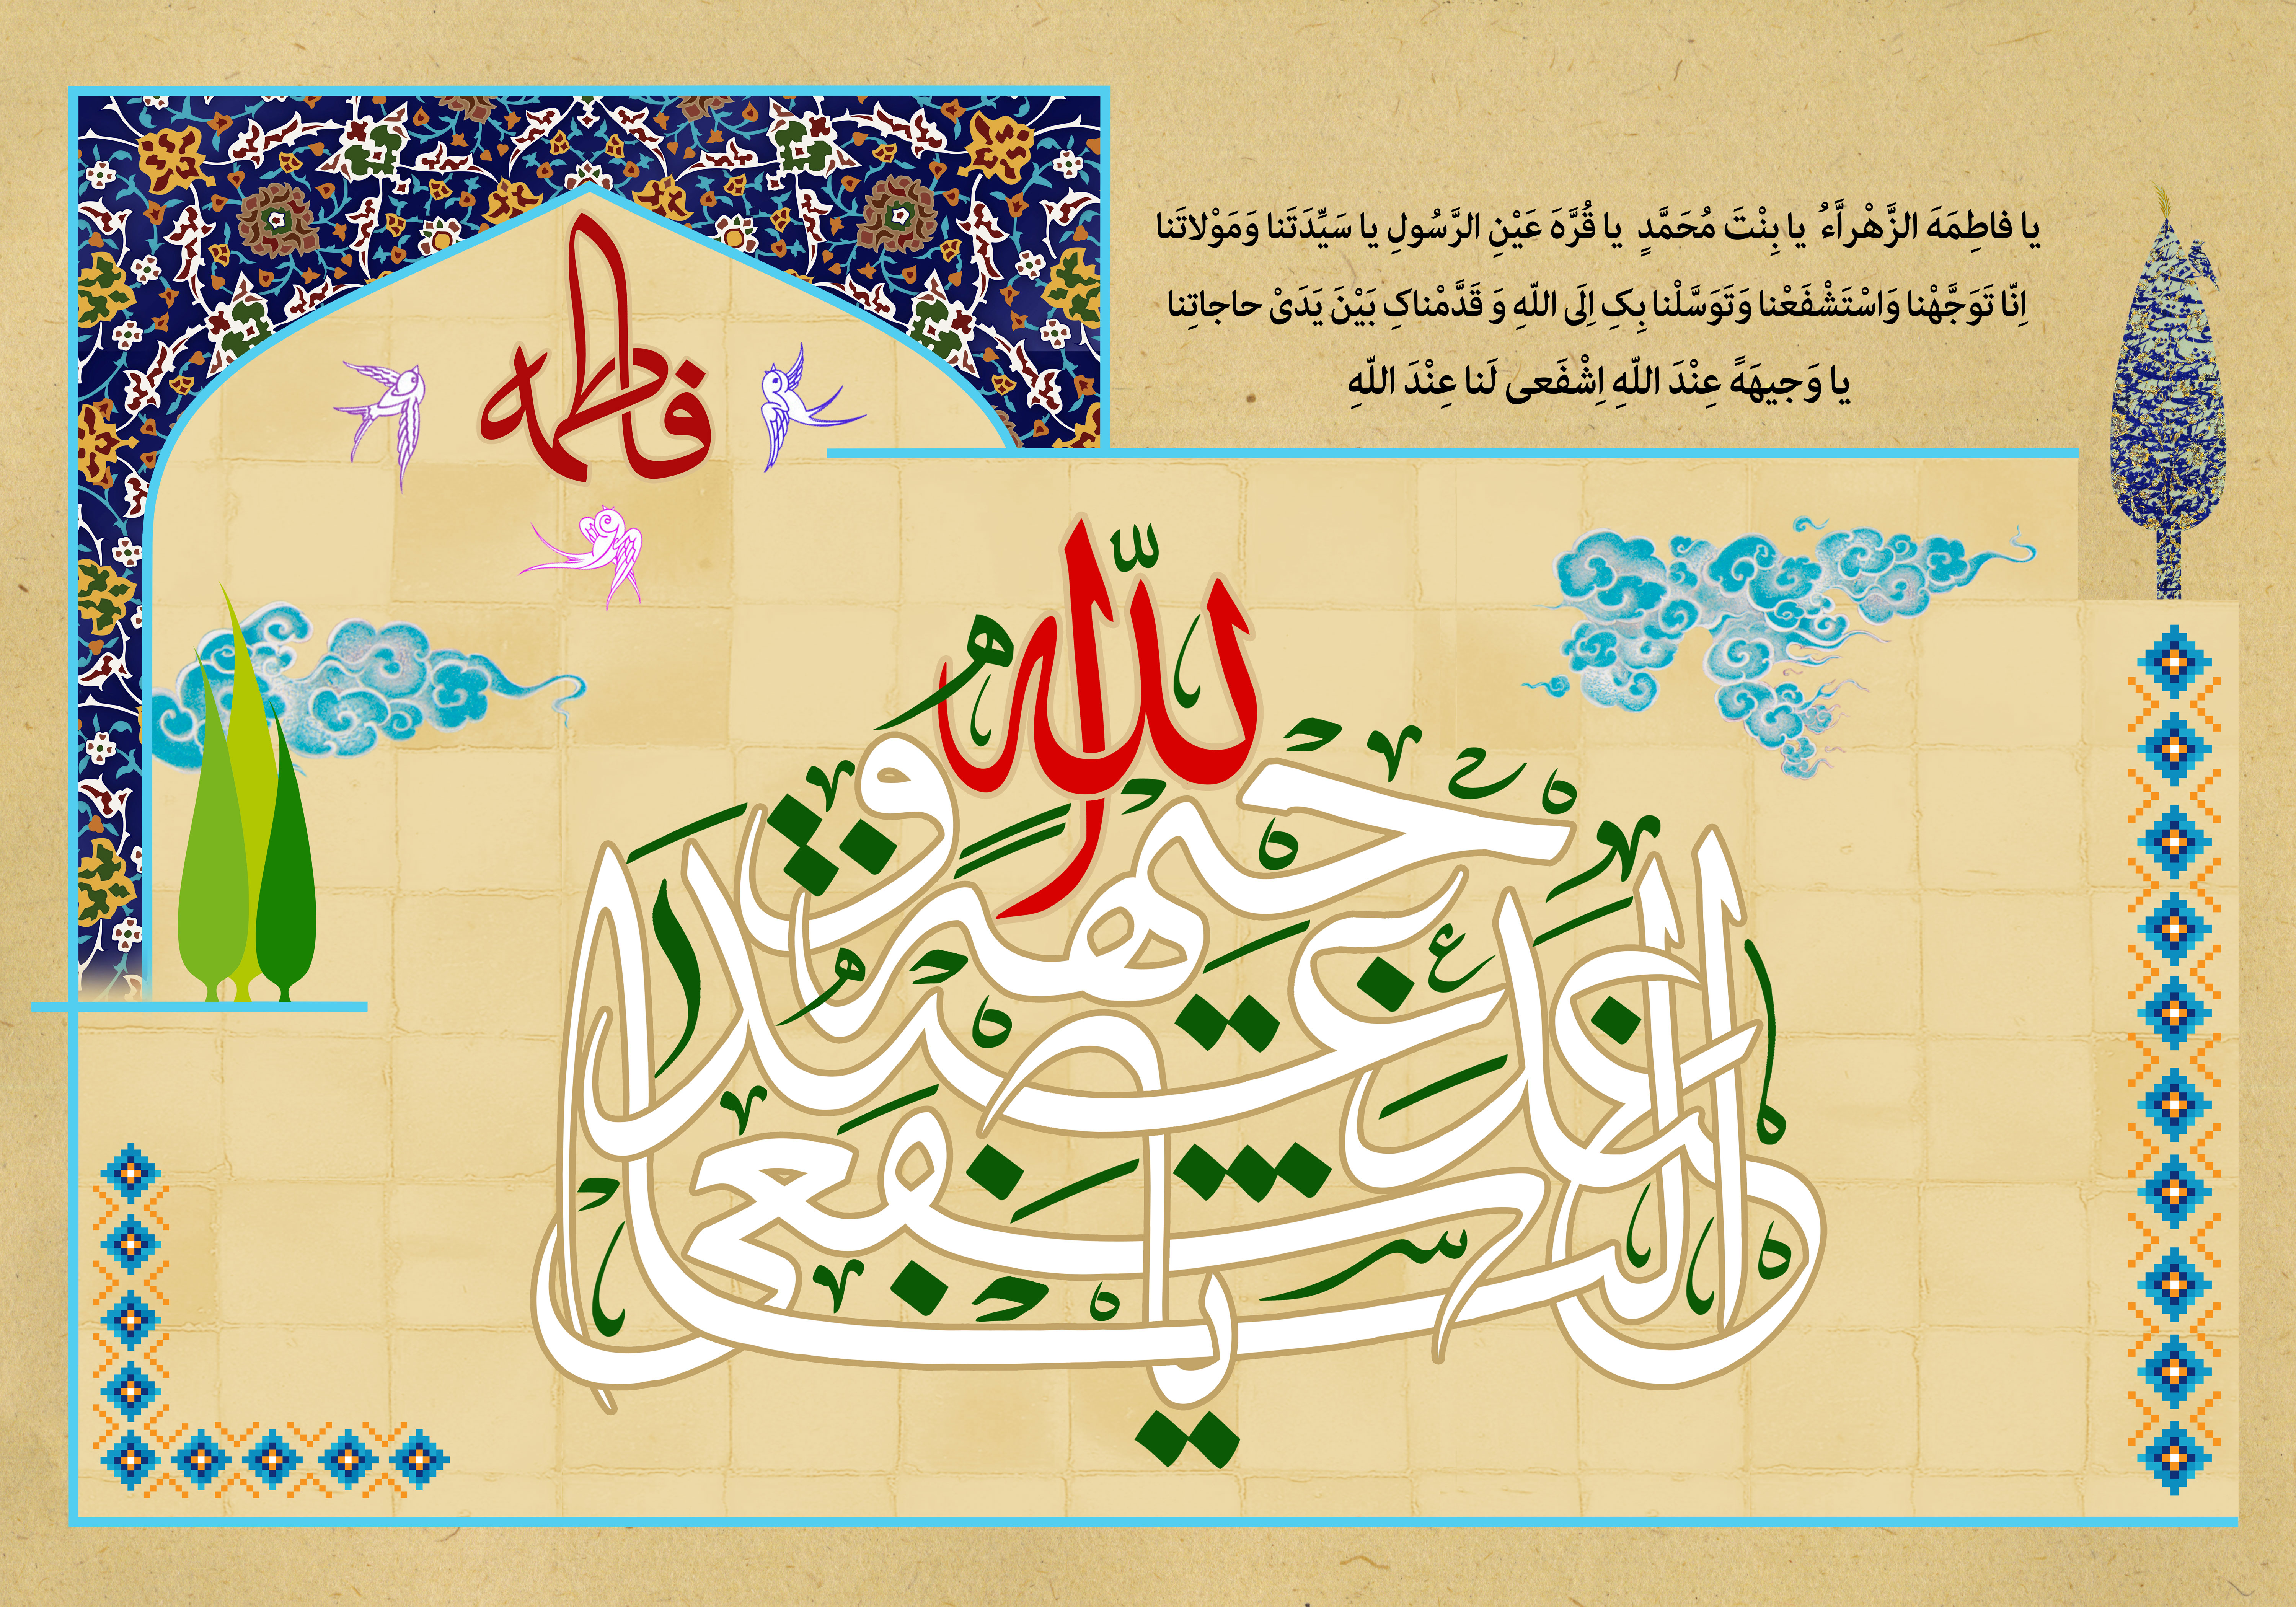 یا فاطِمَهَ الزَّهْراَّءُ یا بِنْتَ مُحَمَّدٍ یا قُرَّهَ عَیْنِ الرَّسُولِ یا سَیِّدَتَنا وَمَوْلاتَنا
اِنّا تَوَجَّهْنا وَاسْتَشْفَعْنا وَتَوَسَّلْنا بِکِ اِلَی اللّهِ وَ قَدَّمْناکِ بَیْنَ یَدَیْ حاجاتِنا
یا وَجیهَهً عِنْدَ اللّهِ اِشْفَعی لَنا عِنْدَ اللّهِ
فاطمه
یا وجیهة عند الله اشفعی لنا عند الله